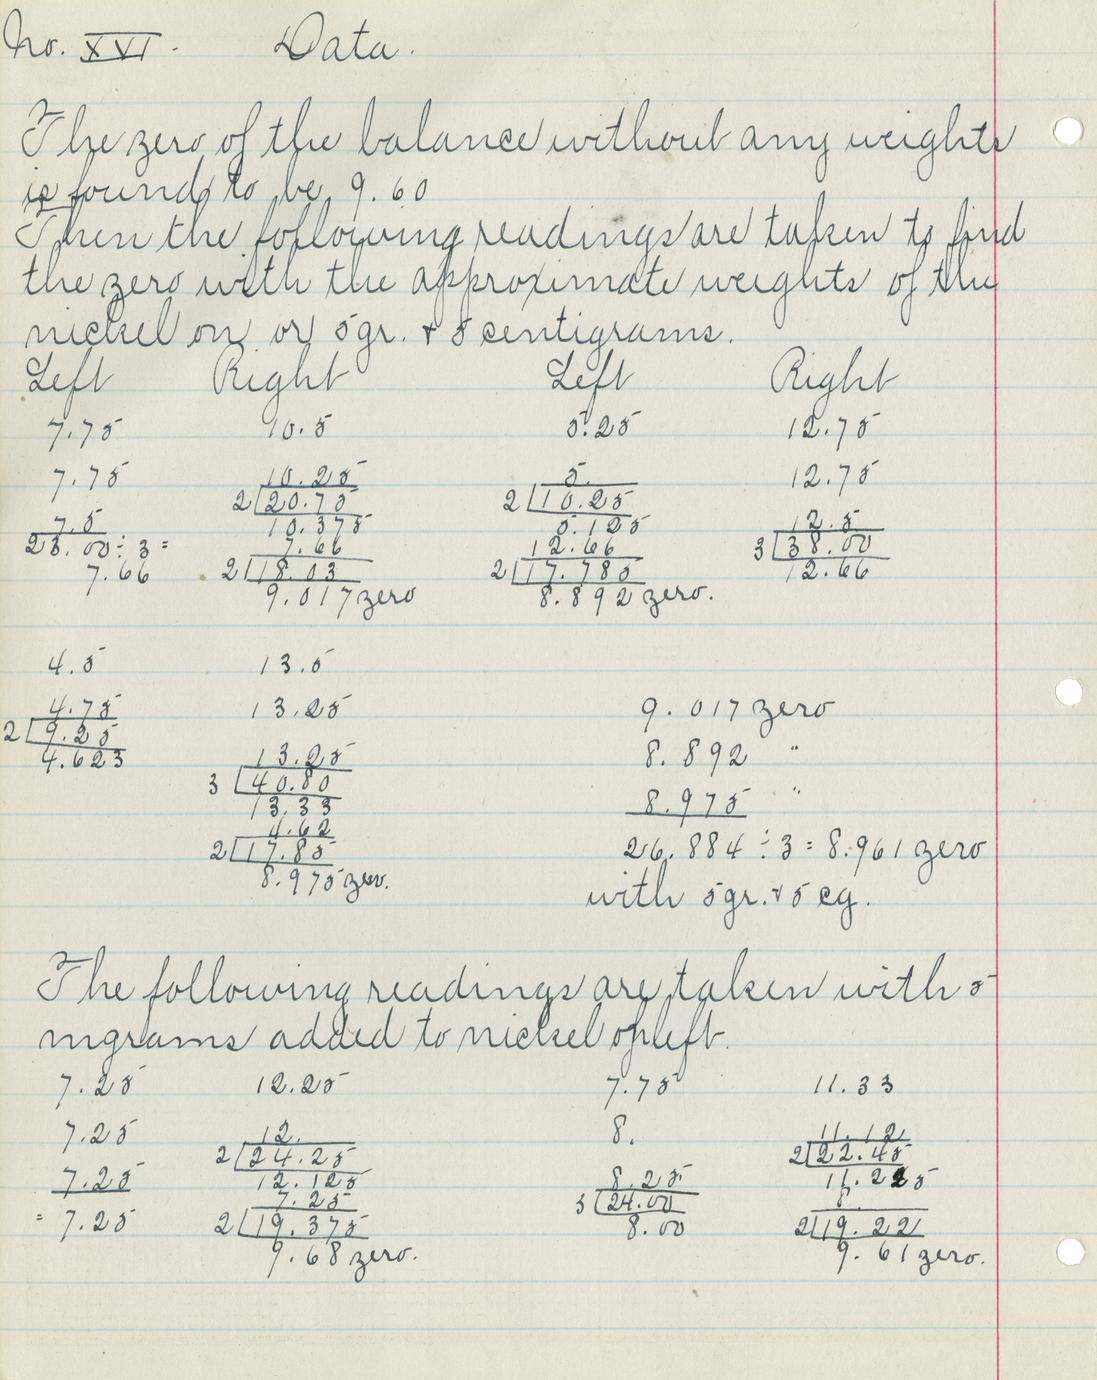 No. XVI. Data.
The zero of the balance without any weights
is found to be 9.60
Then the following readings are taken to find
the zero with the approximate weights of the
nickel on or 5gr. & 5 centigrams.
Left Right Left Right
7.75 10.5 5.25 12.75
7.75 10.25 5. 12.75
2 20.75 2 10.25
7.5 10.375 5.125 12.5
23.00 ÷ 3 = 7.66 12.66 3 38.00
7.66 2 18.03 2 17.785 12.66
9.017 zero 8.892 zero.
4.5 13.5
4.75 13.25 9.017 zero
2 9.25
4.623 13.25 8.892 "
3 40.80
13.33 8.975 "
4.62
2 17.85 26.884 ÷ 3 = 8.961 zero
8.975 zero. with 5gr. & 5 cg.
The following readings are taken with 5
mgrams added to nickel op left.
7.25 12.25 7.75 11.33
7.25 12. 8. 11.12
2 24.25 2 22.45
7.25 12.125 8.25 11.225
7.25 3 24.00 8.
= 7.25 2 19.375 8.00 2 19.221
9.68 zero. 9.61 zero.